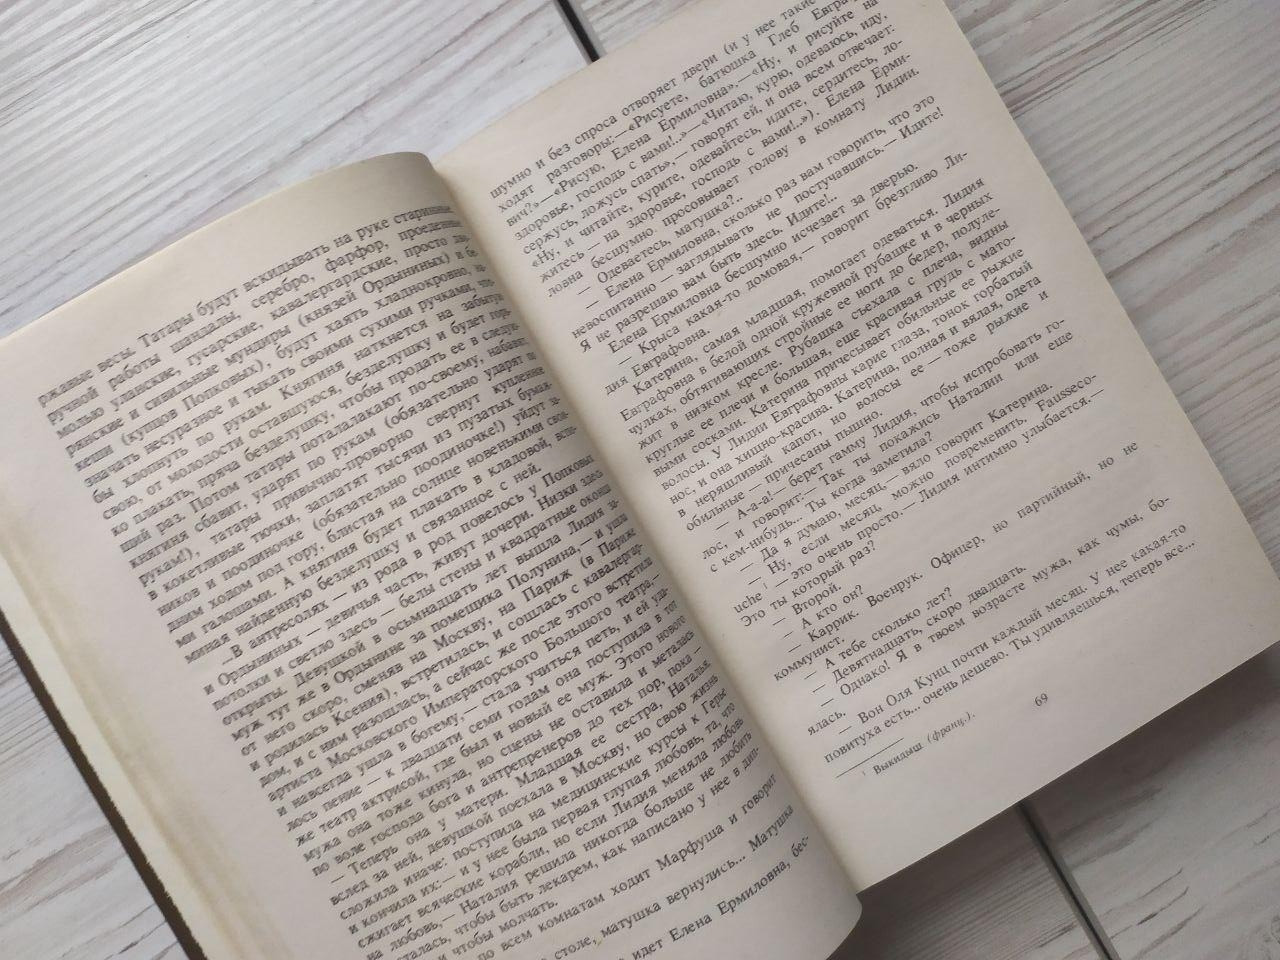 ржавые весы. Татары будут вскидывать на руке старинные
ручной работы шандалы, серебро, фарфор, проеденные
молью уланские, гусарские, кавалергардские, просто дво-
рянские и сивильные мундиры (князей Ордыниных) и бе-
кеши (купцов Попковых), будут хаять хладнокровно, на-
значать несуразное и тыкать своими сухими ручками, что-
бы хлопнуть по рукам. Княгиня наткнется на забытую
свою, от молодости оставшуюся, безделушку и будет горь-
ко плакать, пряча безделушку, чтобы продать ее в следую-
щий раз. Потом татары поталалакают по-своему, набавят,
княгиня сбавит, ударят по рукам (обязательно ударят по
рукам!), татары привычно-проворно свернут купленное
в кокетливые тючки, заплатят тысячи из пузатых бумаж-
ников и поодиночке (обязательно поодиночке!) уйдут за-
дним ходом под гору, блистая на солнце новенькими свои-
ми галошами. А княгиня будет плакать в кладовой, вспо-
миная найденную безделушку и связанное с ней.
...В антресолях — из рода в род повелось у Попковых
и Ордыниных — девичья часть, живут дочери. Низки здесь
потолки и светло здесь — белы стены и квадратные оконца
открыты. Девушкой в осьмнадцать лет вышла Лидия за-
муж тут же в Ордынине за помещика Полунина, — и ушла
от него скоро, сменяв на Москву, на Париж (в Париже
родилась Ксения), встретилась, и сошлась с кавалергар-
дом, и с ним разошлась, а сейчас же после этого встретила
артиста Московского Императорского Большого театра,—
и навсегда ушла в богему, — стала учиться петь, и ей уда-
лось пение — к двадцати семи годам она поступила в тот
же театр актрисой, где был и новый ее муж. Этого нового
мужа она тоже кинула, но сцены не оставила и металась
по воле господа бога и антрепренеров до тех пор, пока —
— Теперь она у матери. Младшая ее сестра, Наталья,
вслед за ней, девушкой поехала в Москву, но свою жизнь
сложила иначе: поступила на медицинские курсы к Герье
и кончила их: — и у нее была первая глупая любовь, та, что
сжигает всяческие корабли, но если Лидия меняла любовь
на любовь, — Наталия решила никогда больше не любить
осталась, чтобы быть лекарем, как написано у нее в дип-
и чтобы молчать.
по всем комнатам ходит Марфуша и говорит
столе, матушка вернулись... Матушка
идет Елена Ермиловна, бес-
шумно и без спроса отворяет двери (и у нее такие
ходят разговоры: — «Рисуете, батюшка Глеб Евгра-
вич?» — «Рисую, Елена Ермиловна». — «Ну, и рисуйте на
здоровье, господь с вами!..» — «Читаю, курю, одеваюсь, иду,
сержусь, ложусь спать», — говорят ей, и она всем отвечает:
«Ну, и читайте, курите, одевайтесь, идите, сердитесь, ло-
житесь — на здоровье, господь с вами!..»). Елена Ерми-
ловна бесшумно просовывает голову в комнату Лидии.
— Одеваетесь, матушка?..
— Елена Ермиловна, сколько раз вам говорить, что это
невоспитанно — заглядывать не постучавшись. — Идите!
Я не разрешаю вам быть здесь. Идите!..
Елена Ермиловна бесшумно исчезает за дверью.
— Крыса какая-то домовая, — говорит брезгливо Ли-
дия Евграфовна.
Катерина, самая младшая, помогает одеваться. Лидия
Евграфовна в белой одной кружевной рубашке и в черных
чулках, обтягивающих стройные ее ноги до бедер, полуле-
жит в низком кресле. Рубашка съехала с плеча, — видны
круглые ее плечи и большая, еще красивая грудь с мато-
выми сосками. Катерина причесывает обильные ее рыжие
волосы. У Лидии Евграфовны карие глаза, тонок горбатый
нос, и она хищно-красива. Катерина, полная и вялая, одета
в неряшливый капот, но волосы ее — тоже рыжие и
обильные — причесаны пышно.
— А-а-а! — берет гамму Лидия, чтобы испробовать го-
лос, и говорит: — Так ты покажись Наталии или еще
с кем-нибудь... Ты когда заметила?
— Да я думаю, месяц, — вяло говорит Катерина.
— Ну, если месяц, можно повременить, Fausseco-
uche ¹ — это очень просто. — Лидия интимно улыбается. —
Это ты который раз?
— Второй.
— А кто он?
— Каррик. Военрук. Офицер, но партийный, но не
коммунист.
— А тебе сколько лет?
— Девятнадцать, скоро двадцать.
— Однако! Я в твоем возрасте мужа, как чумы, бо-
ялась.
— Вон Оля Кунц почти каждый месяц. У нее какая-то
повитуха есть... очень дешево. Ты удивляешься, теперь все...
¹ Выкидыш (франц.).
69